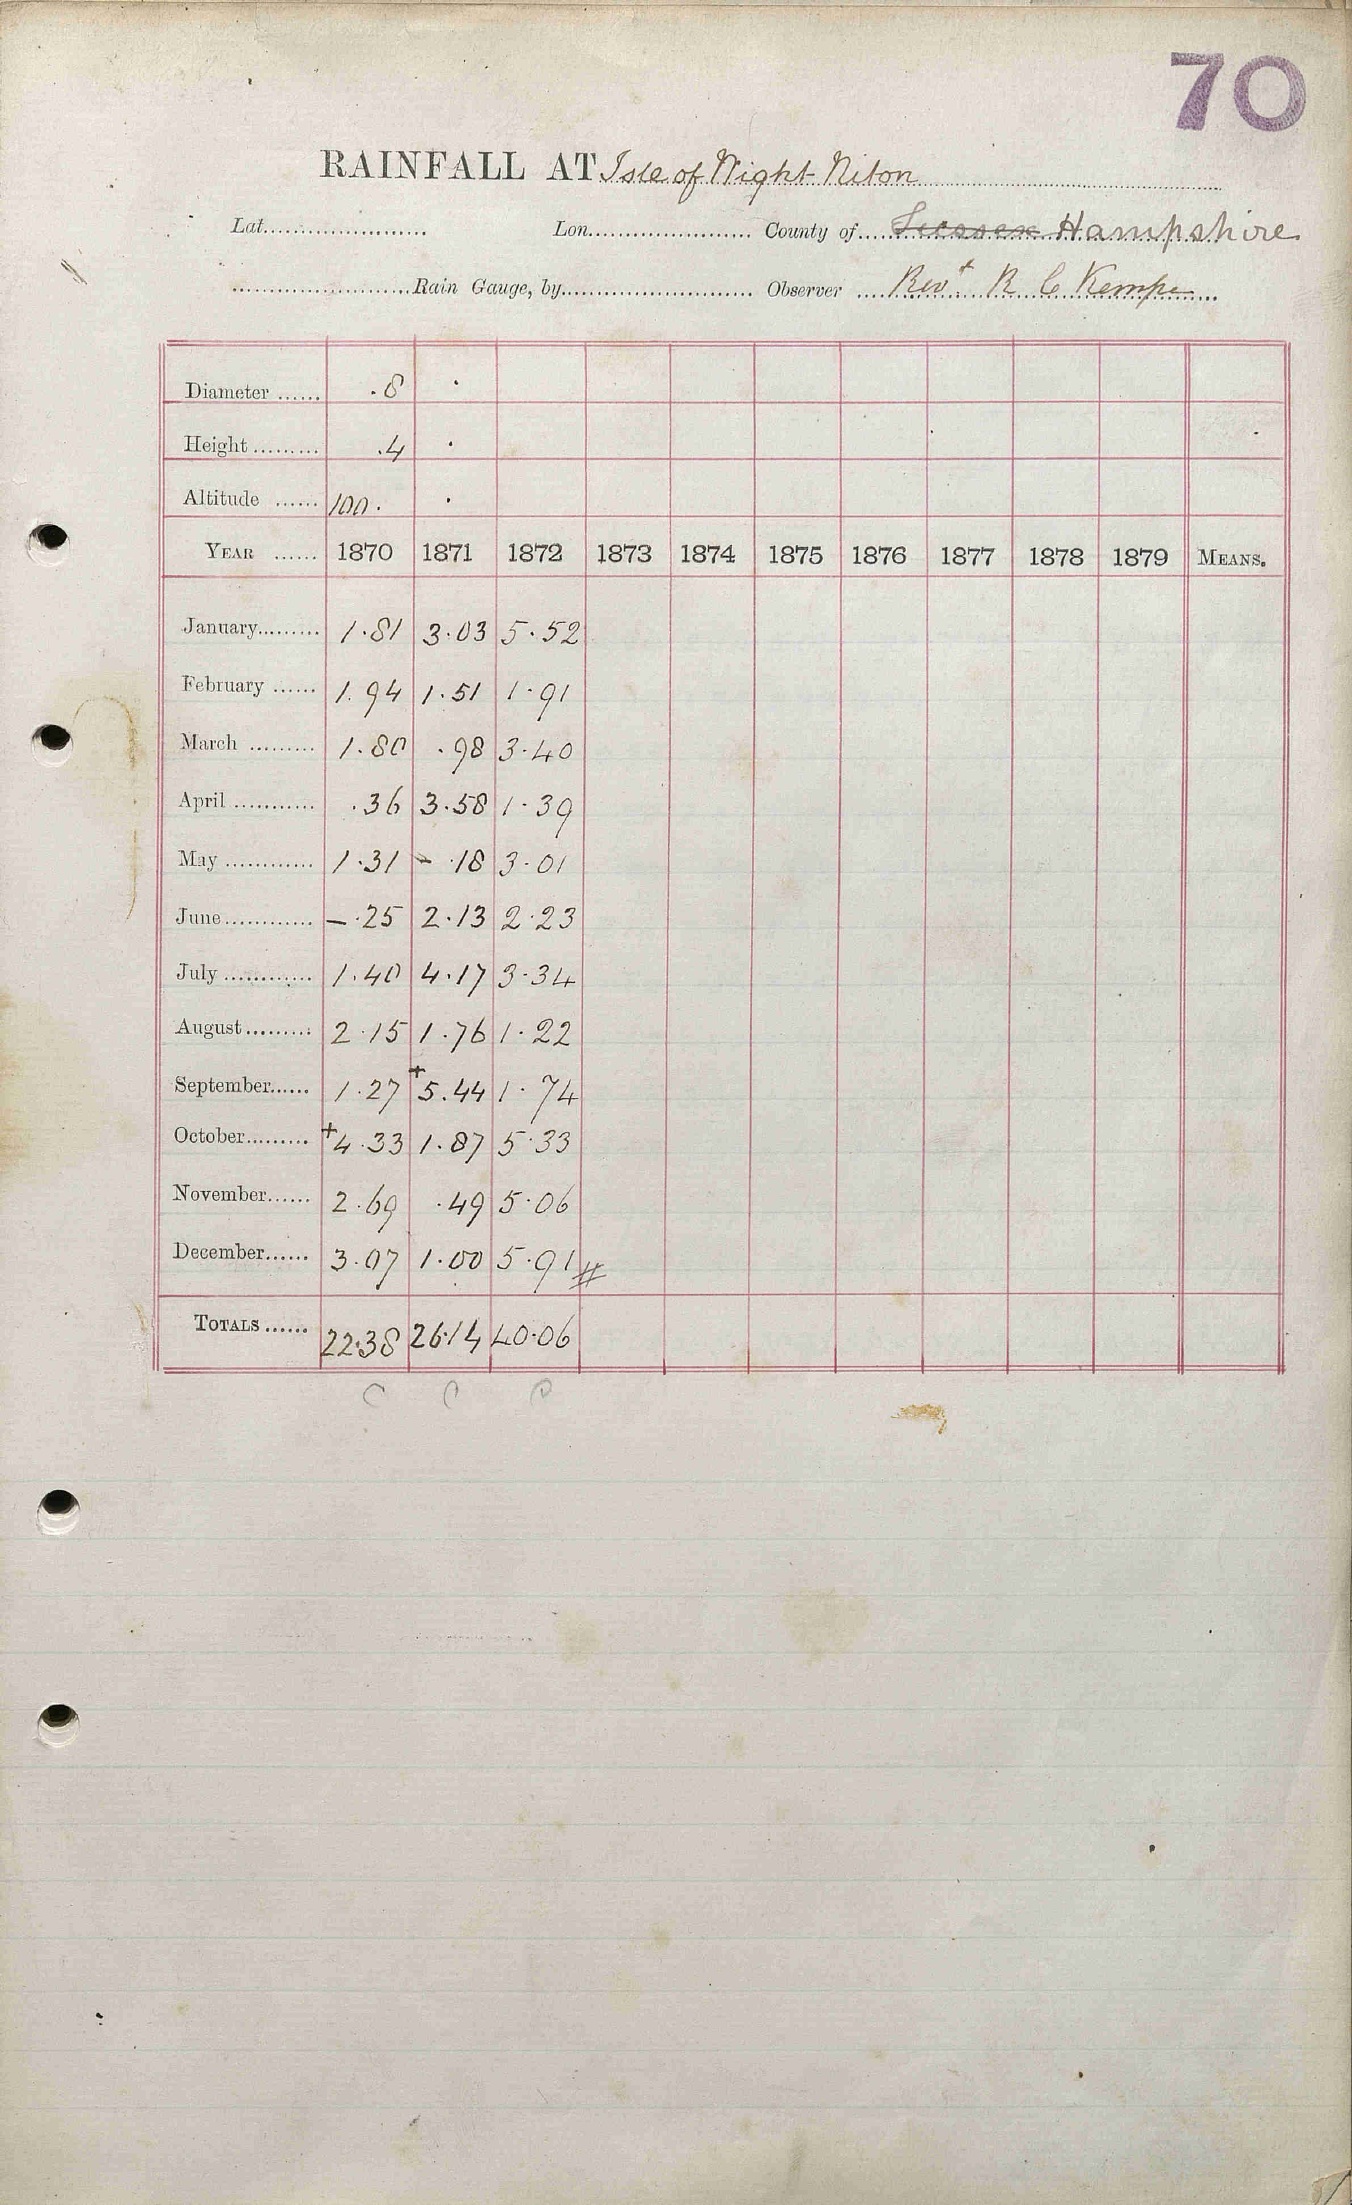 70
RAINFALL AT Isle of Wight Niton
Lat. Lon. County of Sussex Hampshire
Rain Gauge, by Observer Revd. R C Kempe
Diameter ...... .8 .
Height ......... .4 .
Altitude ...... 100. .
YEAR ...... 1870 1871 1872 1873 1874 1875 1876 1877 1878 1879 MEANS.
January......... 1.81 3.03 5.52
February ...... 1.94 1.51 1.91
March ......... 1.80 .98 3.40
April ........... .36 3.58 1.39
May ............ 1.31 - .18 3.01
June............ - .25 2.13 2.23
July ............ 1.40 4.17 3.34
August......... 2.15 1.76 1.22
September...... 1.27 +5.44 1.74
October......... +4.33 1.87 5.33
November...... 2.69 .49 5.06
December...... 3.07 1.00 5.91 #
TOTALS ...... 22.38 26.14 40.06